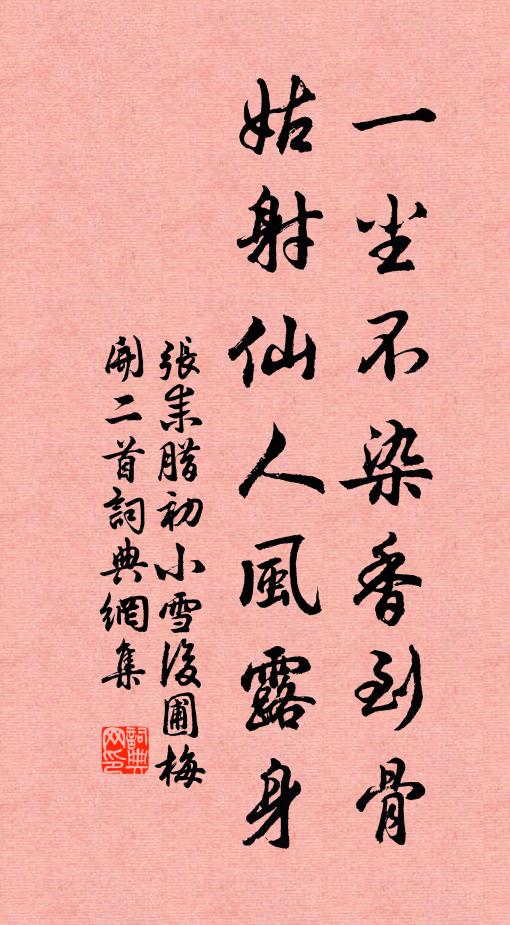 一尘不染香到骨
姑射仙人風露身
張耒腊初小雪後圃梅
開二首詞典網集
詞典
网印